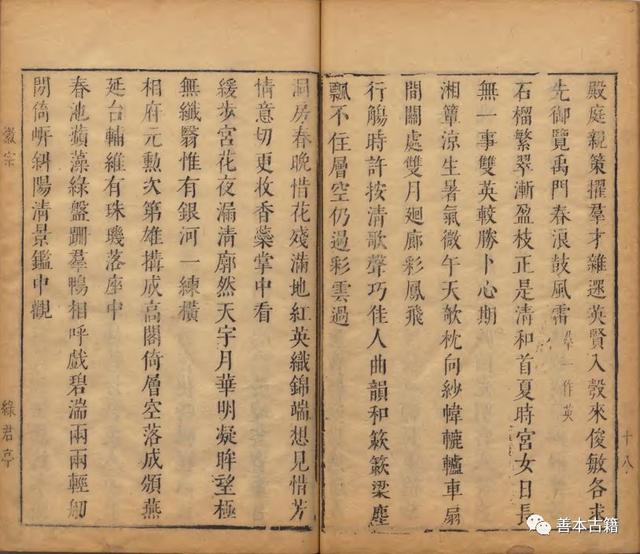 殿庭親策擢羣才雜遝英賢入彀來俊敏各求
先御覽禹門春浪鼓風雷
羣一作英
石榴繁翠漸盈枝正是清和首夏時宮女日長
無一事雙英較勝卜心期
湘簟涼生暑氣微午天欹枕向紗幃轆轤車扇
間關處雙月廻廊彩鳳飛
行觴時許按清歌聲巧佳人曲韻和簌簌梁塵
飄不住層空仍過彩雲過
十八
洞房春晚惜花殘滿地紅英織錦端想見惜芳
情意切更收香蘂掌中看
緩步宮花夜漏淸廓然天宇月華明凝眸望極
無纖翳惟有銀河一練橫
相府元勲次第雄搆成高閣倚層空落成頒燕
延台輔維有珠璣落座中
春池蘋藻綠盤跚羣鴨相呼戯碧湍兩兩輕舠
閒倚岍斜陽淸景鑑中觀
徽宗
綠君亭
善本古籍